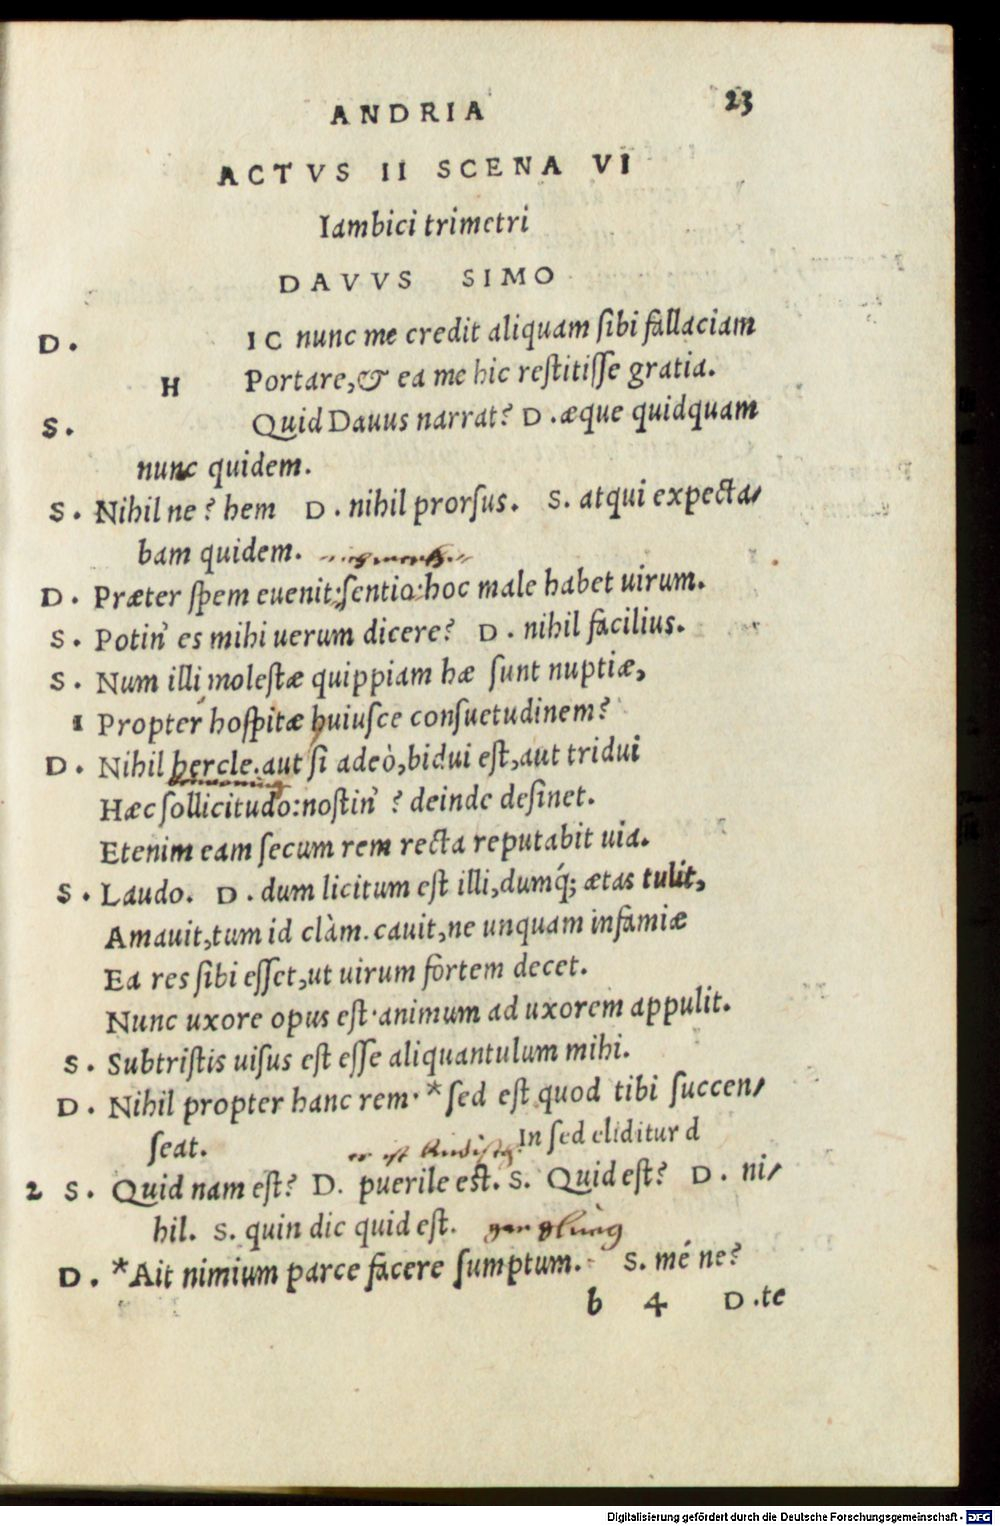 ANDRIA 23
ACTVS II SCENA VI
Iambici trimetri
DAVVS SIMO
D. IC nunc me credit aliquam ſibi fallaciam
H Portare,& ea me hic reſtitiſſe gratia.
S. Quid Dauus narrat? D. æque quidquam
nunc quidem.
S. Nihil ne? hem D. nihil prorſus. S. atqui expecta/
bam quidem.
D. Præter ſpem euenit:ſentio:hoc male habet uirum.
S. Potin' es mihi uerum dicere? D. nihil facilius.
S. Num illi moleſtæ quippiam hæ ſunt nuptiæ,
1 Propter hoſpitæ huiuſce conſuetudinem?
D. Nihil hercle.aut ſi adeò,bidui eſt,aut tridui
Hæc ſollicitudo:noſtin' ? deinde deſinet.
Etenim eam ſecum rem recta reputabit uia.
S. Laudo. D. dum licitum eſt illi,dumq́; ætas tulit,
Amauit,tum id clàm.cauit,ne unquam infamiæ
Ea res ſibi eſſet,ut uirum fortem decet.
Nunc uxore opus eſt·animum ad uxorem appulit.
S. Subtriſtis uiſus eſt eſſe aliquantulum mihi.
D. Nihil propter hanc rem·*ſed eſt quod tibi ſuccen/
ſeat. In ſed eliditur d
2 S. Quid nam eſt? D. puerile eſt. S. Quid eſt? D. ni/
hil. S. quin dic quid eſt.
D. *Ait nimium parce facere ſumptum. S. mé ne?
b 4 D.te
Digitalisierung gefördert durch die Deutsche Forschungsgemeinschaft - DFG